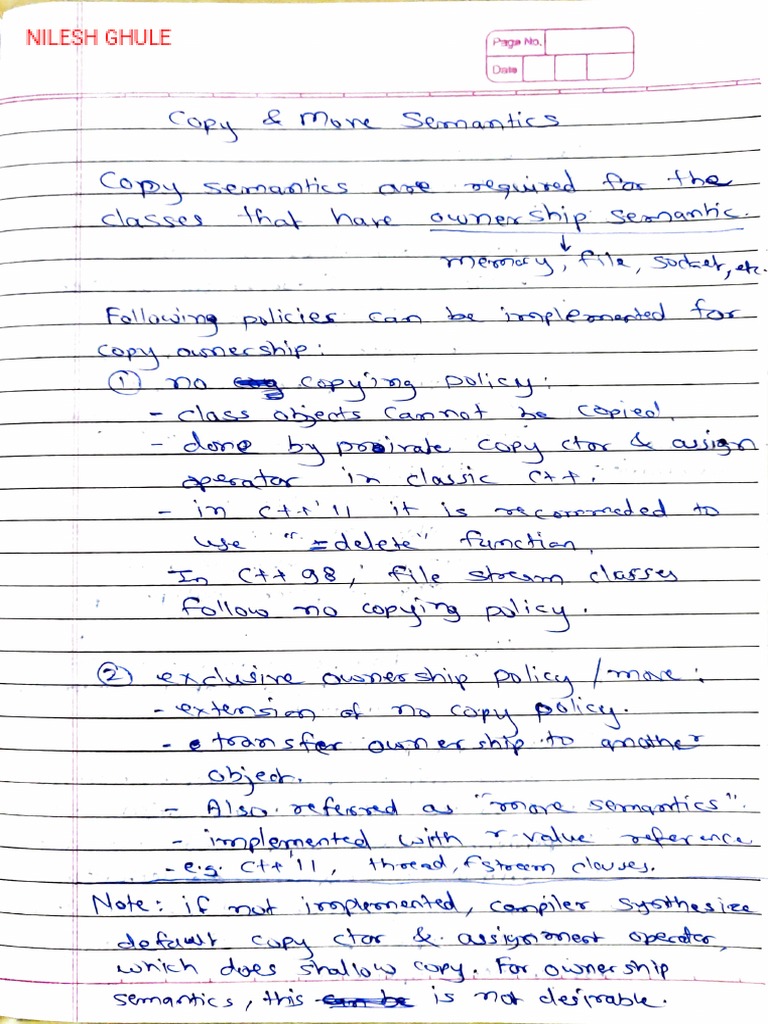 NILESH GHULE
Page No.
Date
Copy & Move Semantics
Copy semantics are required for the
classes that have ownership semantic.
↓
memory, file, socket, etc.
Following policies can be implemented for
copy ownership:
① no copying policy:
- class objects cannot be copied.
- done by private copy ctor & assign
operator in classic C++.
- in C++'11 it is recommaded to
use "=delete" function.
In C++98, file stream classes
follow no copying policy.
② exclusive ownership policy / move:
- extension of no copy policy.
- transfer ownership to another
object.
- Also referred as "move semantics".
- implemented with r-value reference
- e.g. C++'11, thread, fstream classes.
Note: if not implemented, compiler synthesize
default copy ctor & assignment operator,
which does shallow copy. For ownership
semantics, this is not desirable.